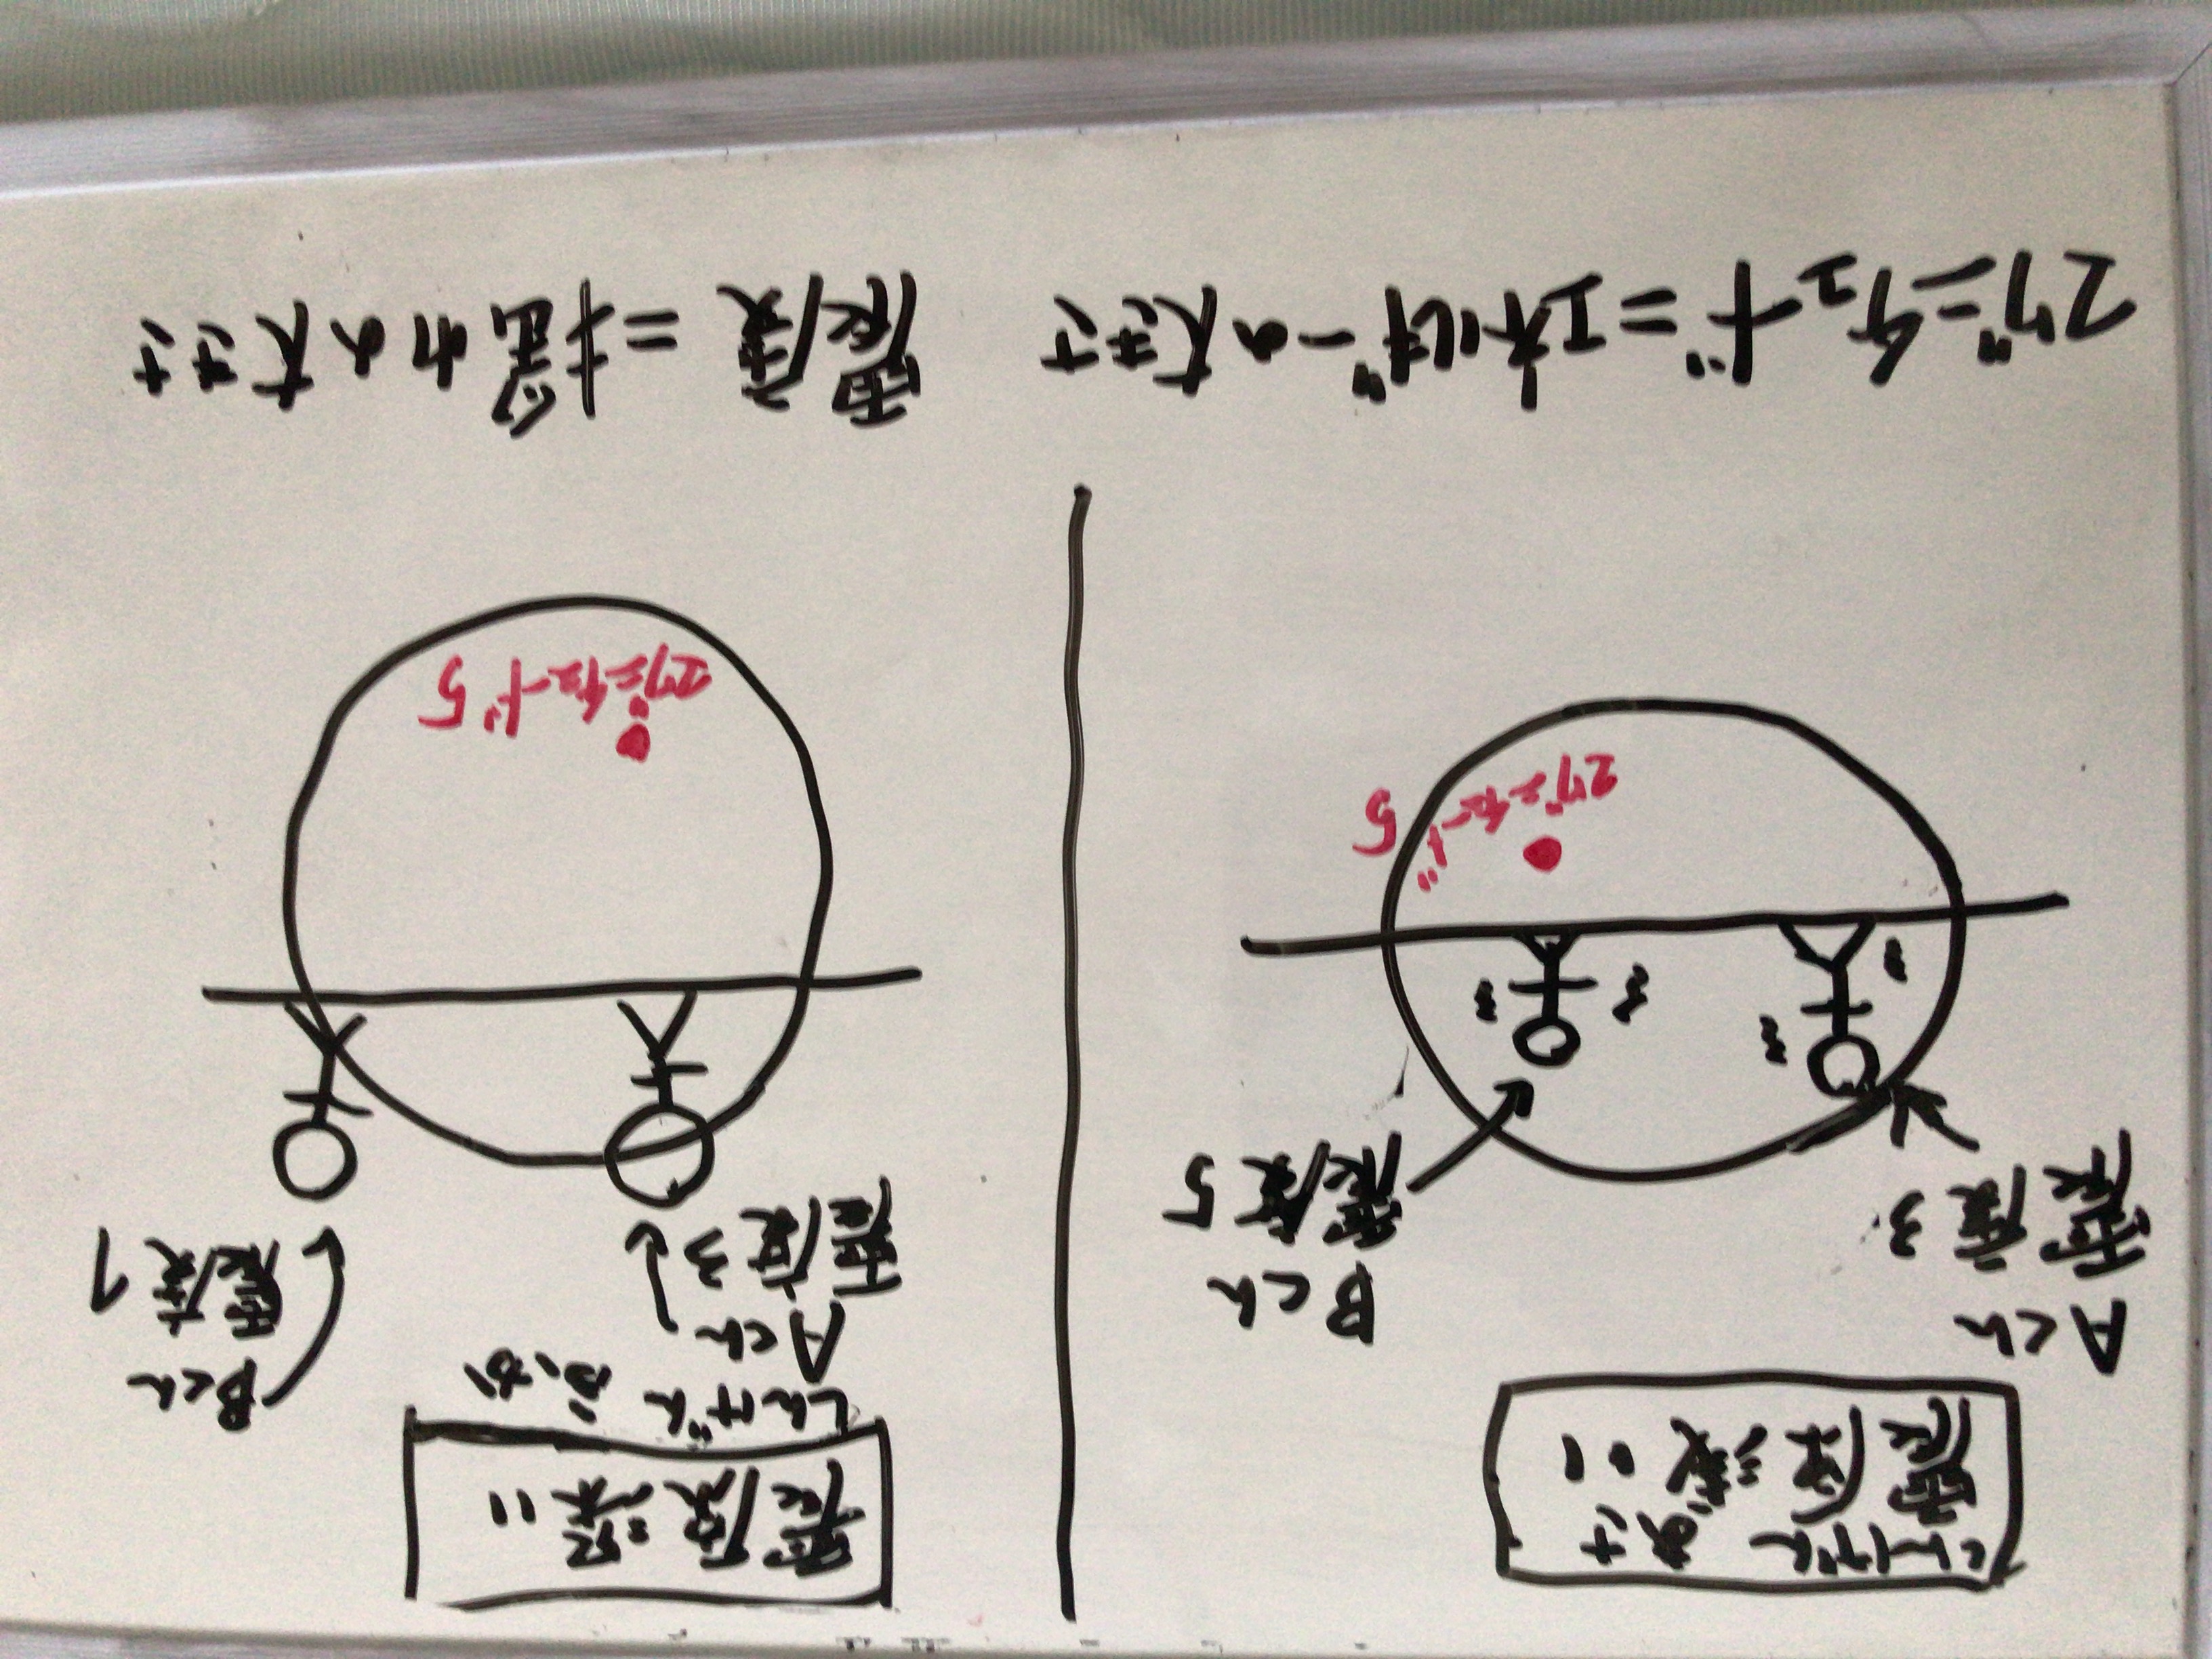 しんげん あさ
震度浅い
Aくん
震度3
Bくん
震度5
マグニチュード5
震度深い
しんげん ふか
Aくん
震度3
Bくん
震度1
マグニチュード5
マグニチュード=エネルギーの大きさ
震度=揺れの大きさ